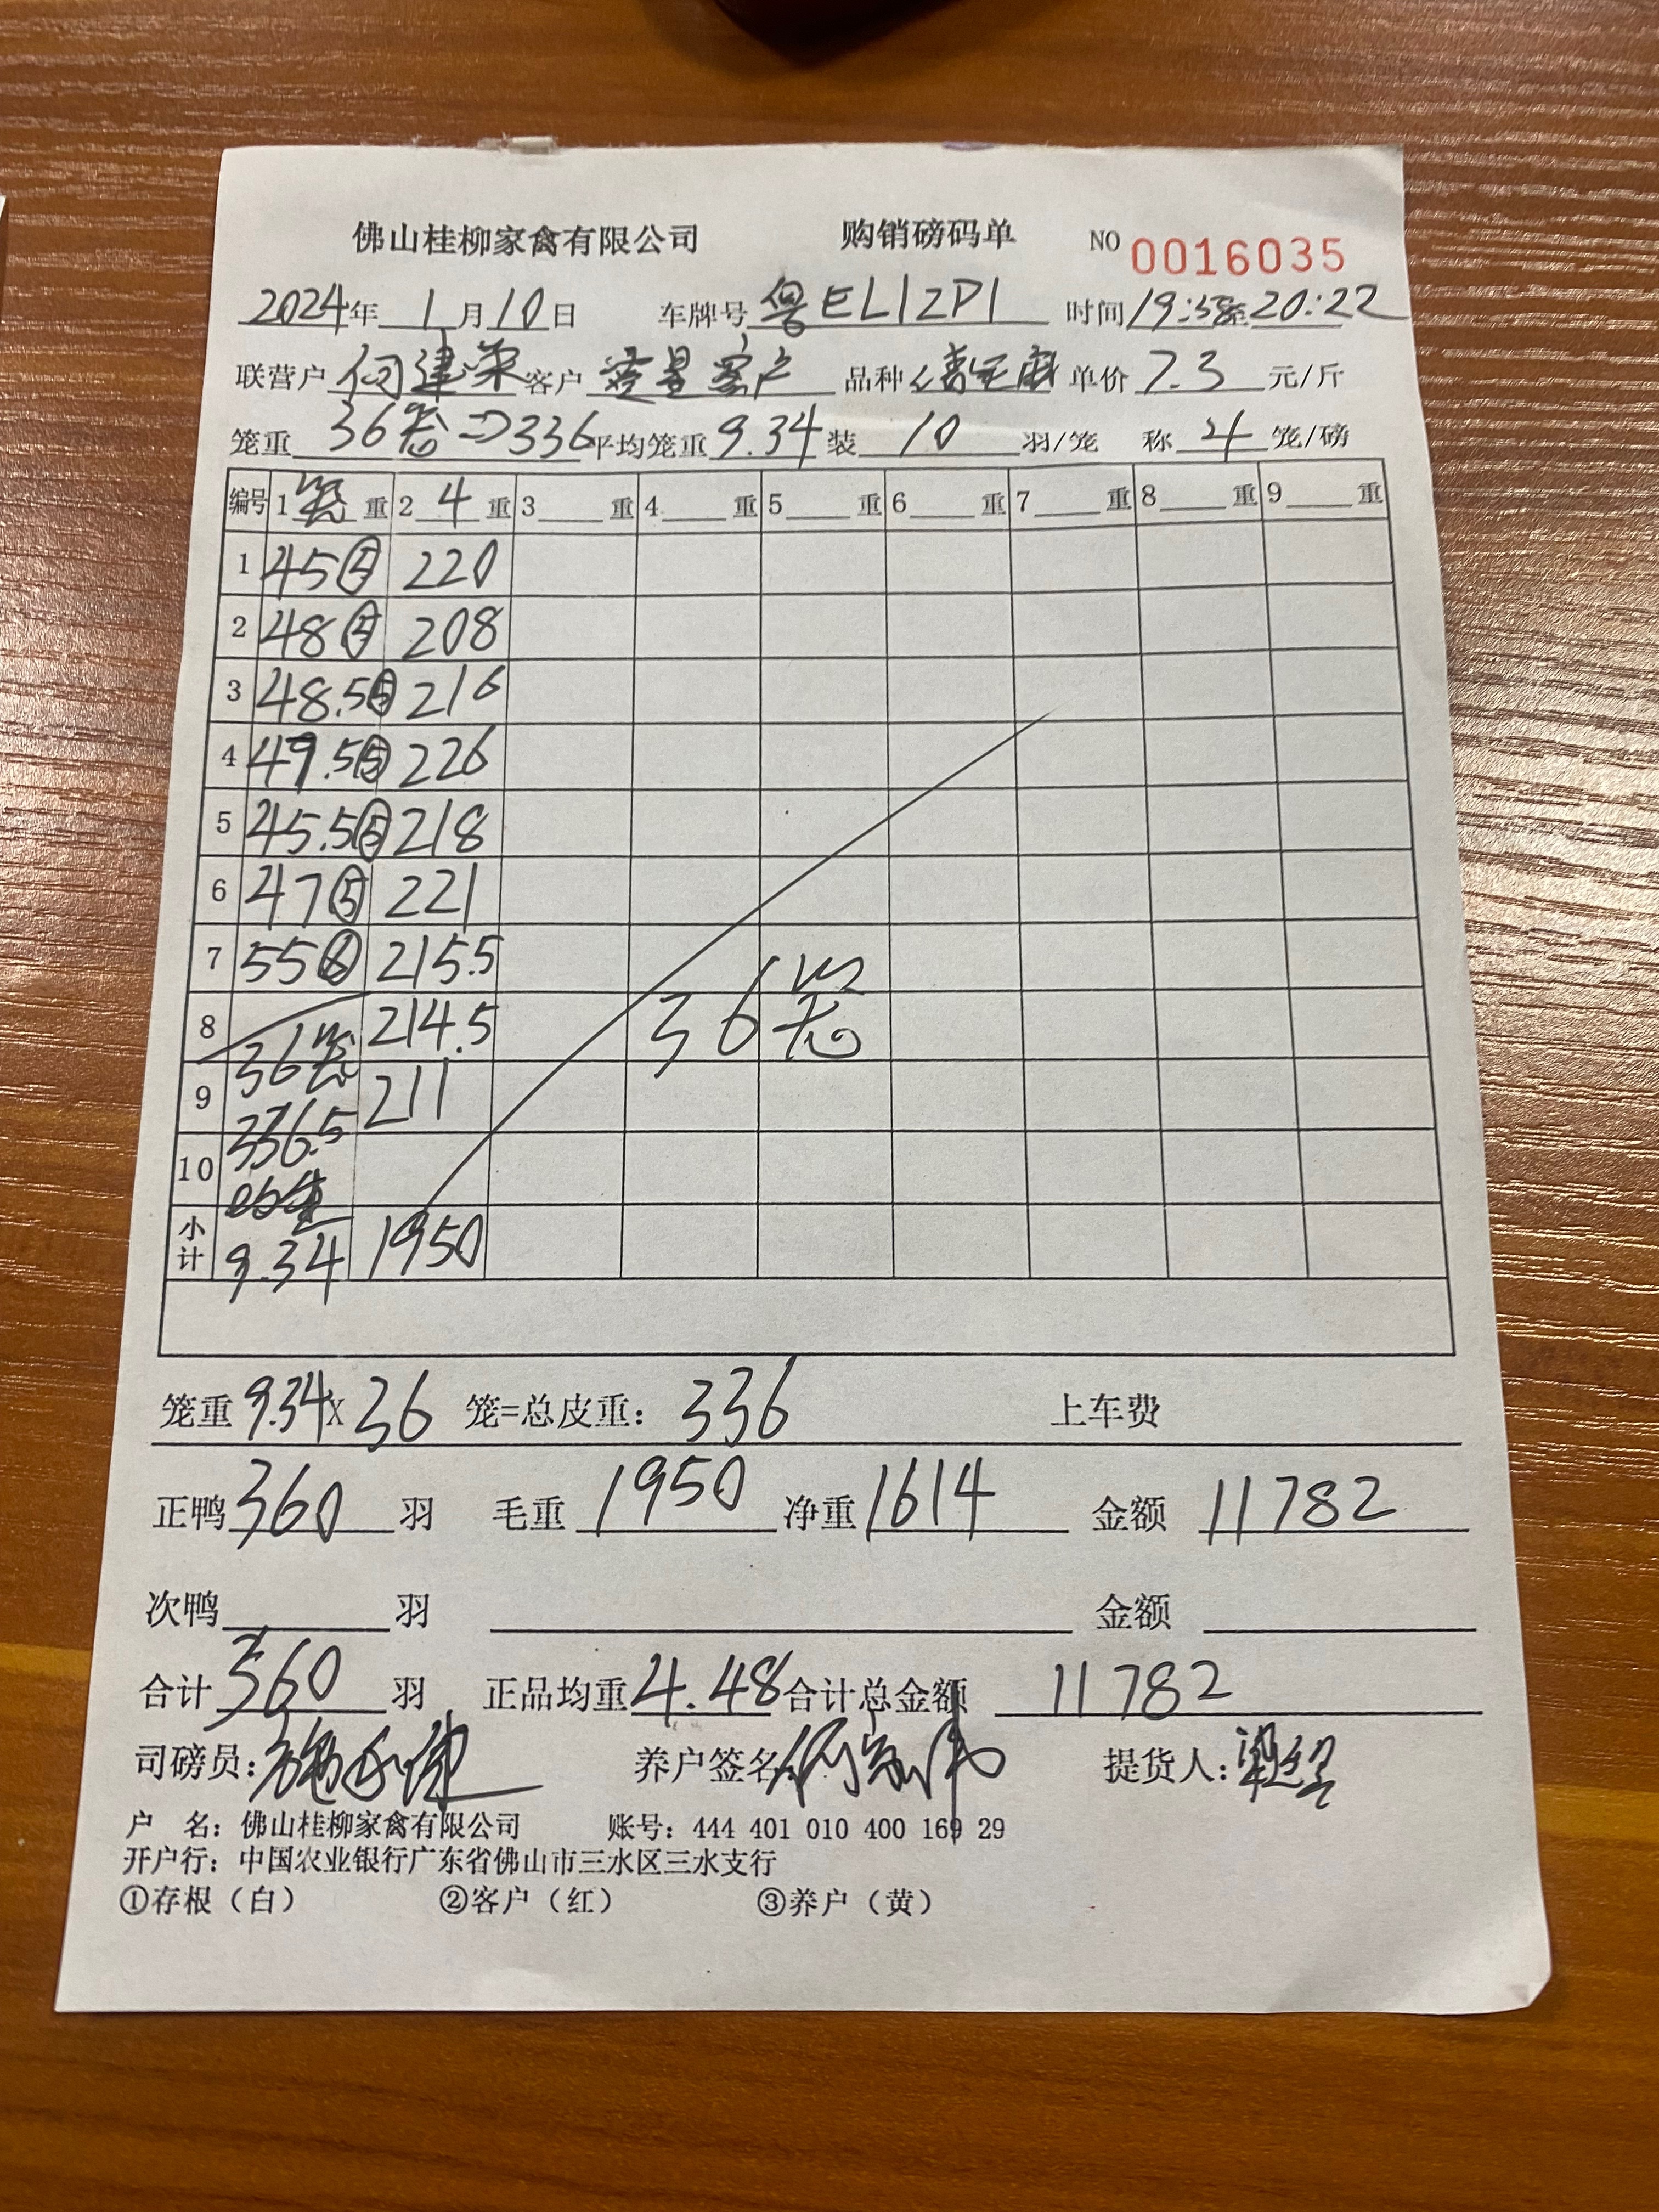 佛山桂柳家禽有限公司 购销磅码单 NO 0016035
2024年 1月10日 车牌号 粤EL12P1 时间 19:58至20:22
联营户 何建荣 客户 零星客户 品种 单价 7.3 元/斤
笼重 36笼⇒336 平均笼重 9.34 装 10 羽/笼 称 4 笼/磅
编号 1 笼 重 2 4 重 3 重 4 重 5 重 6 重 7 重 8 重 9 重
1 45⑤ 220
2 48⑤ 208
3 48.5⑤ 216
4 49.5⑤ 226
5 45.5⑤ 218
6 47⑤ 221
7 55⑥ 215.5
8 36笼 214.5 36笼
9 336.5 211
10
小计 9.34 1950
笼重 9.34 X 36 笼=总皮重: 336 上车费
正鸭 360 羽 毛重 1950 净重 1614 金额 11782
次鸭 羽 金额
合计 360 羽 正品均重 4.48 合计总金额 11782
司磅员: 养户签名: 提货人:
户 名: 佛山桂柳家禽有限公司 账号: 444 401 010 400 169 29
开户行: 中国农业银行广东省佛山市三水区三水支行
①存根(白) ②客户(红) ③养户(黄)